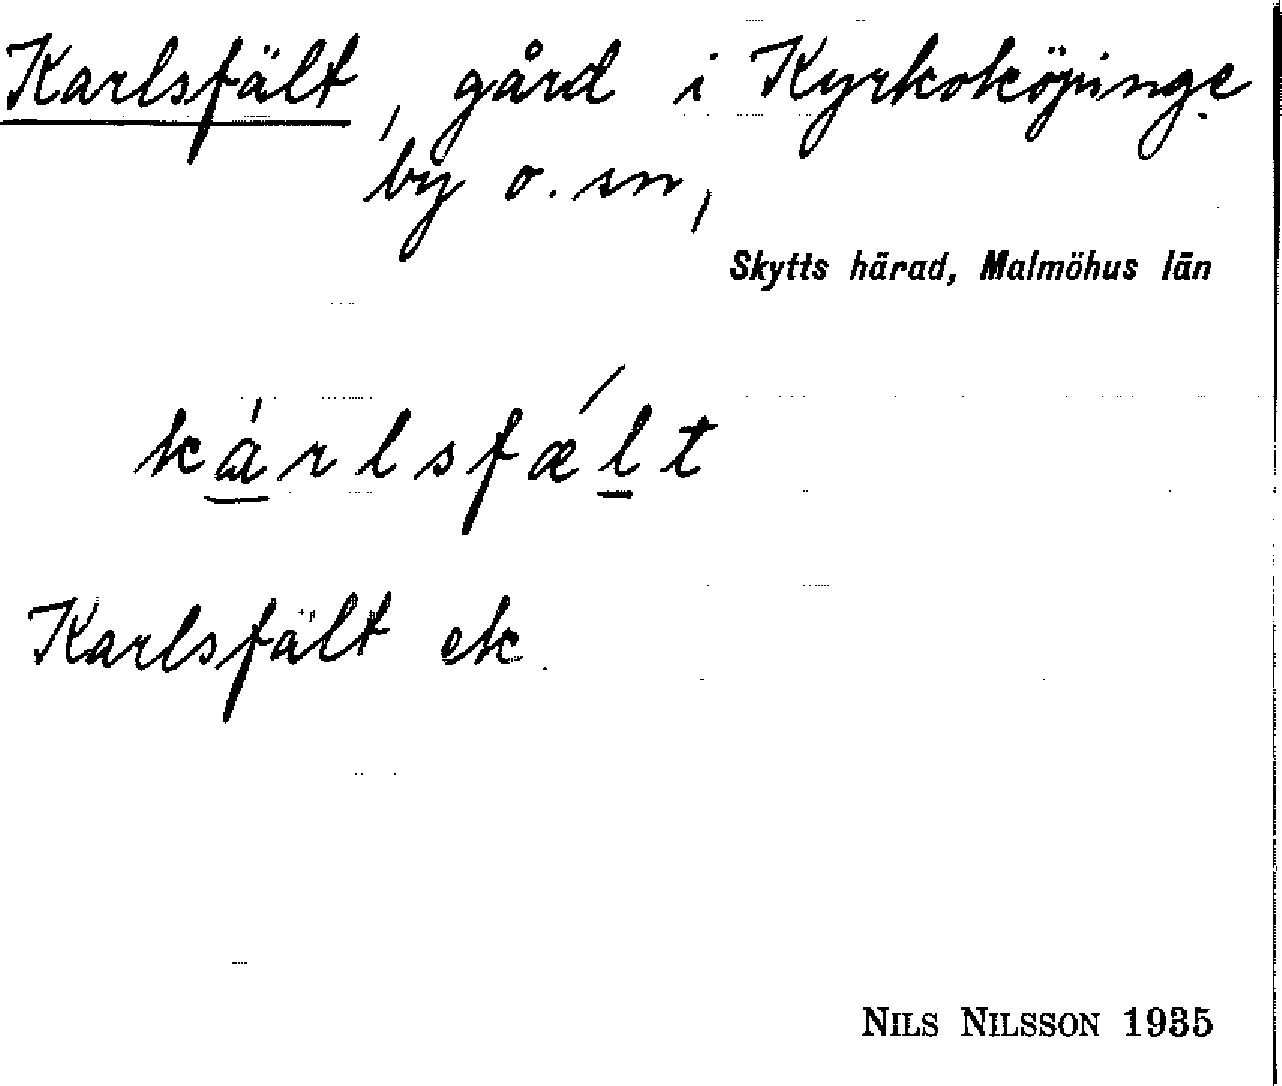 Karlsfält, gård i Kyrkoköpinge
by o. sn,
Skytts härad, Malmöhus län
kárlsfǽlt
Karlsfält ek.
NILS NILSSON 1935